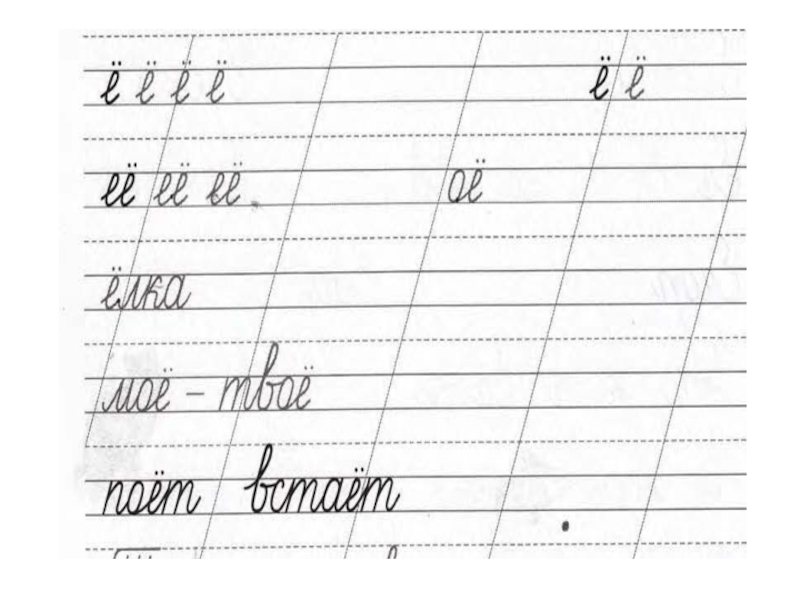 ё ё ё ё ё ё
её её её оё
ёлка
моё - твоё
поёт встаёт